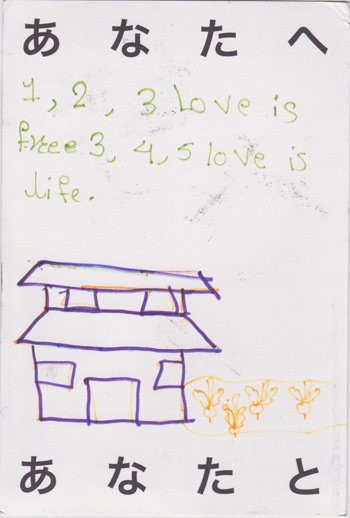 あなたへ
1, 2, 3 Love is
free 3, 4, 5 love is
life.
あなたと